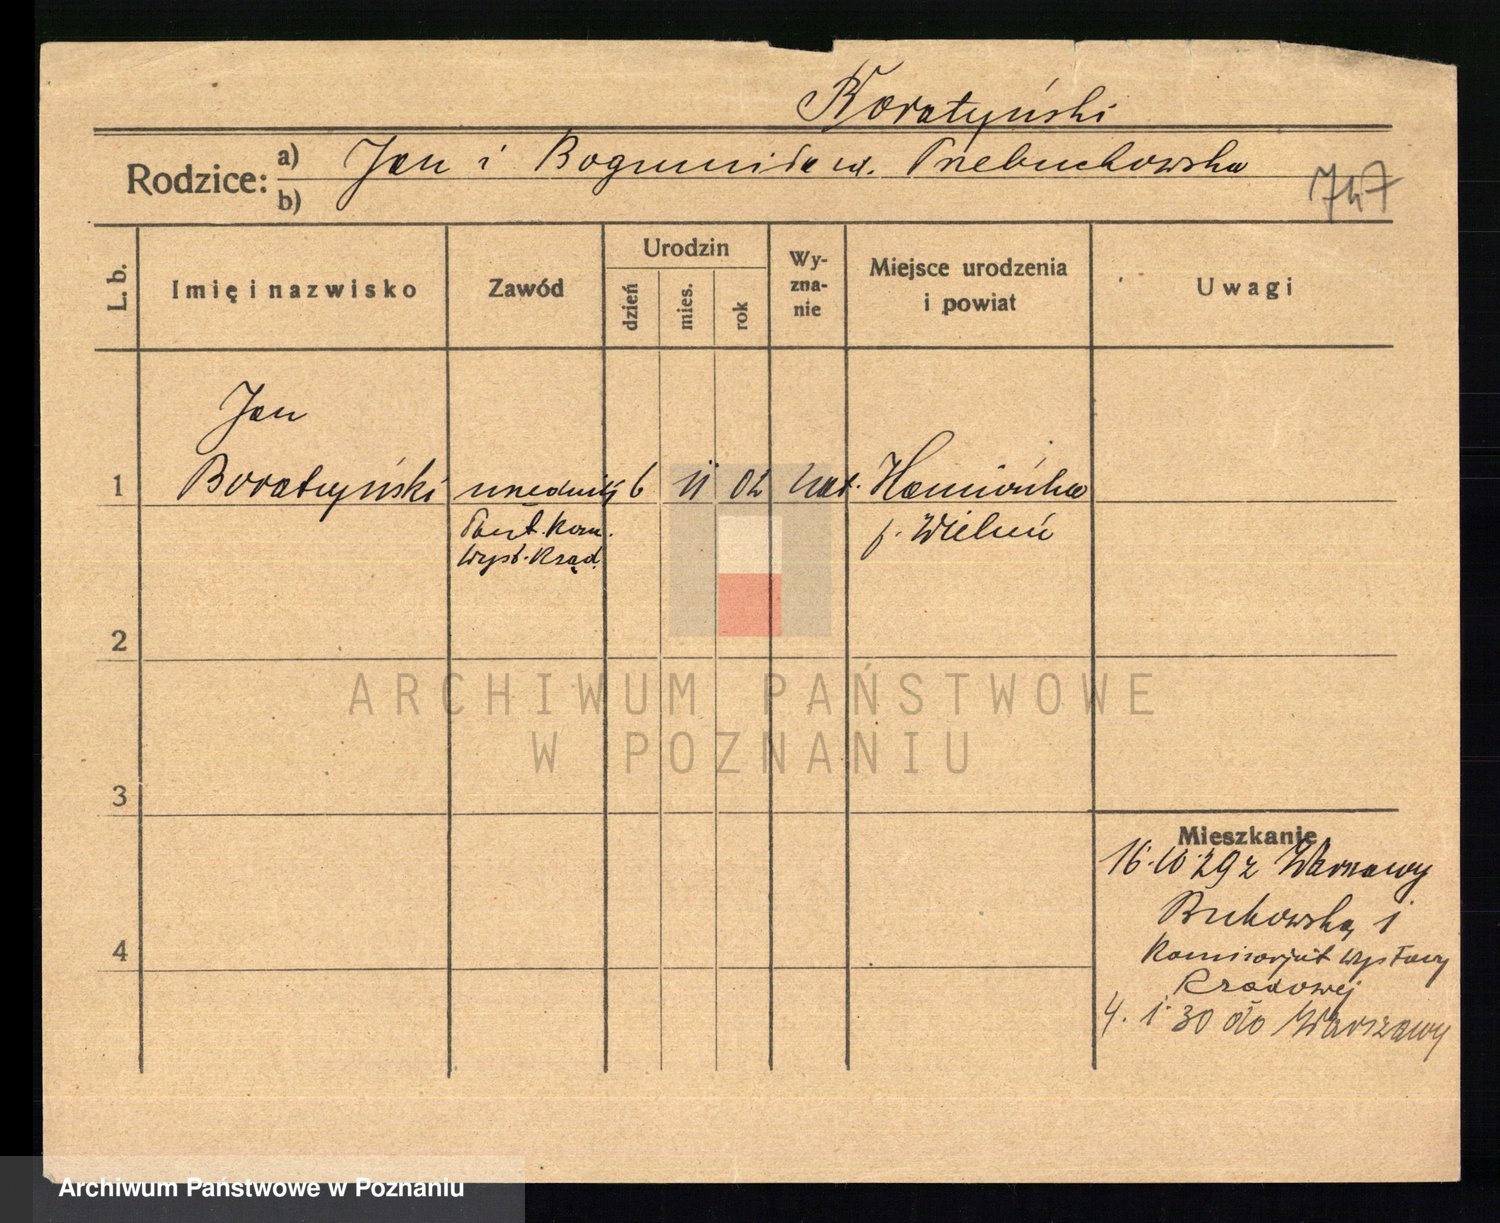 Boratyński
Rodzice: a) Jan i Bogumiła ur. Trzebuchowska
b)
747
L. b. Imię i nazwisko Zawód Urodzin dzień mies. rok Wyznanie Miejsce urodzenia i powiat Uwagi
Jan
1 Boratyński urzędnik 6 11 02 kat. Kamionka
Państ. Kom. p. Wieluń
Wyst. Rząd.
2
3
4
Mieszkanie
16.10.29 z Warszawy
Bukowska 1
Komisarjat Wystawy
Rządowej
4. 1. 30 do Warszawy
ARCHIWUM PAŃSTWOWE
W POZNANIU
Archiwum Państwowe w Poznaniu